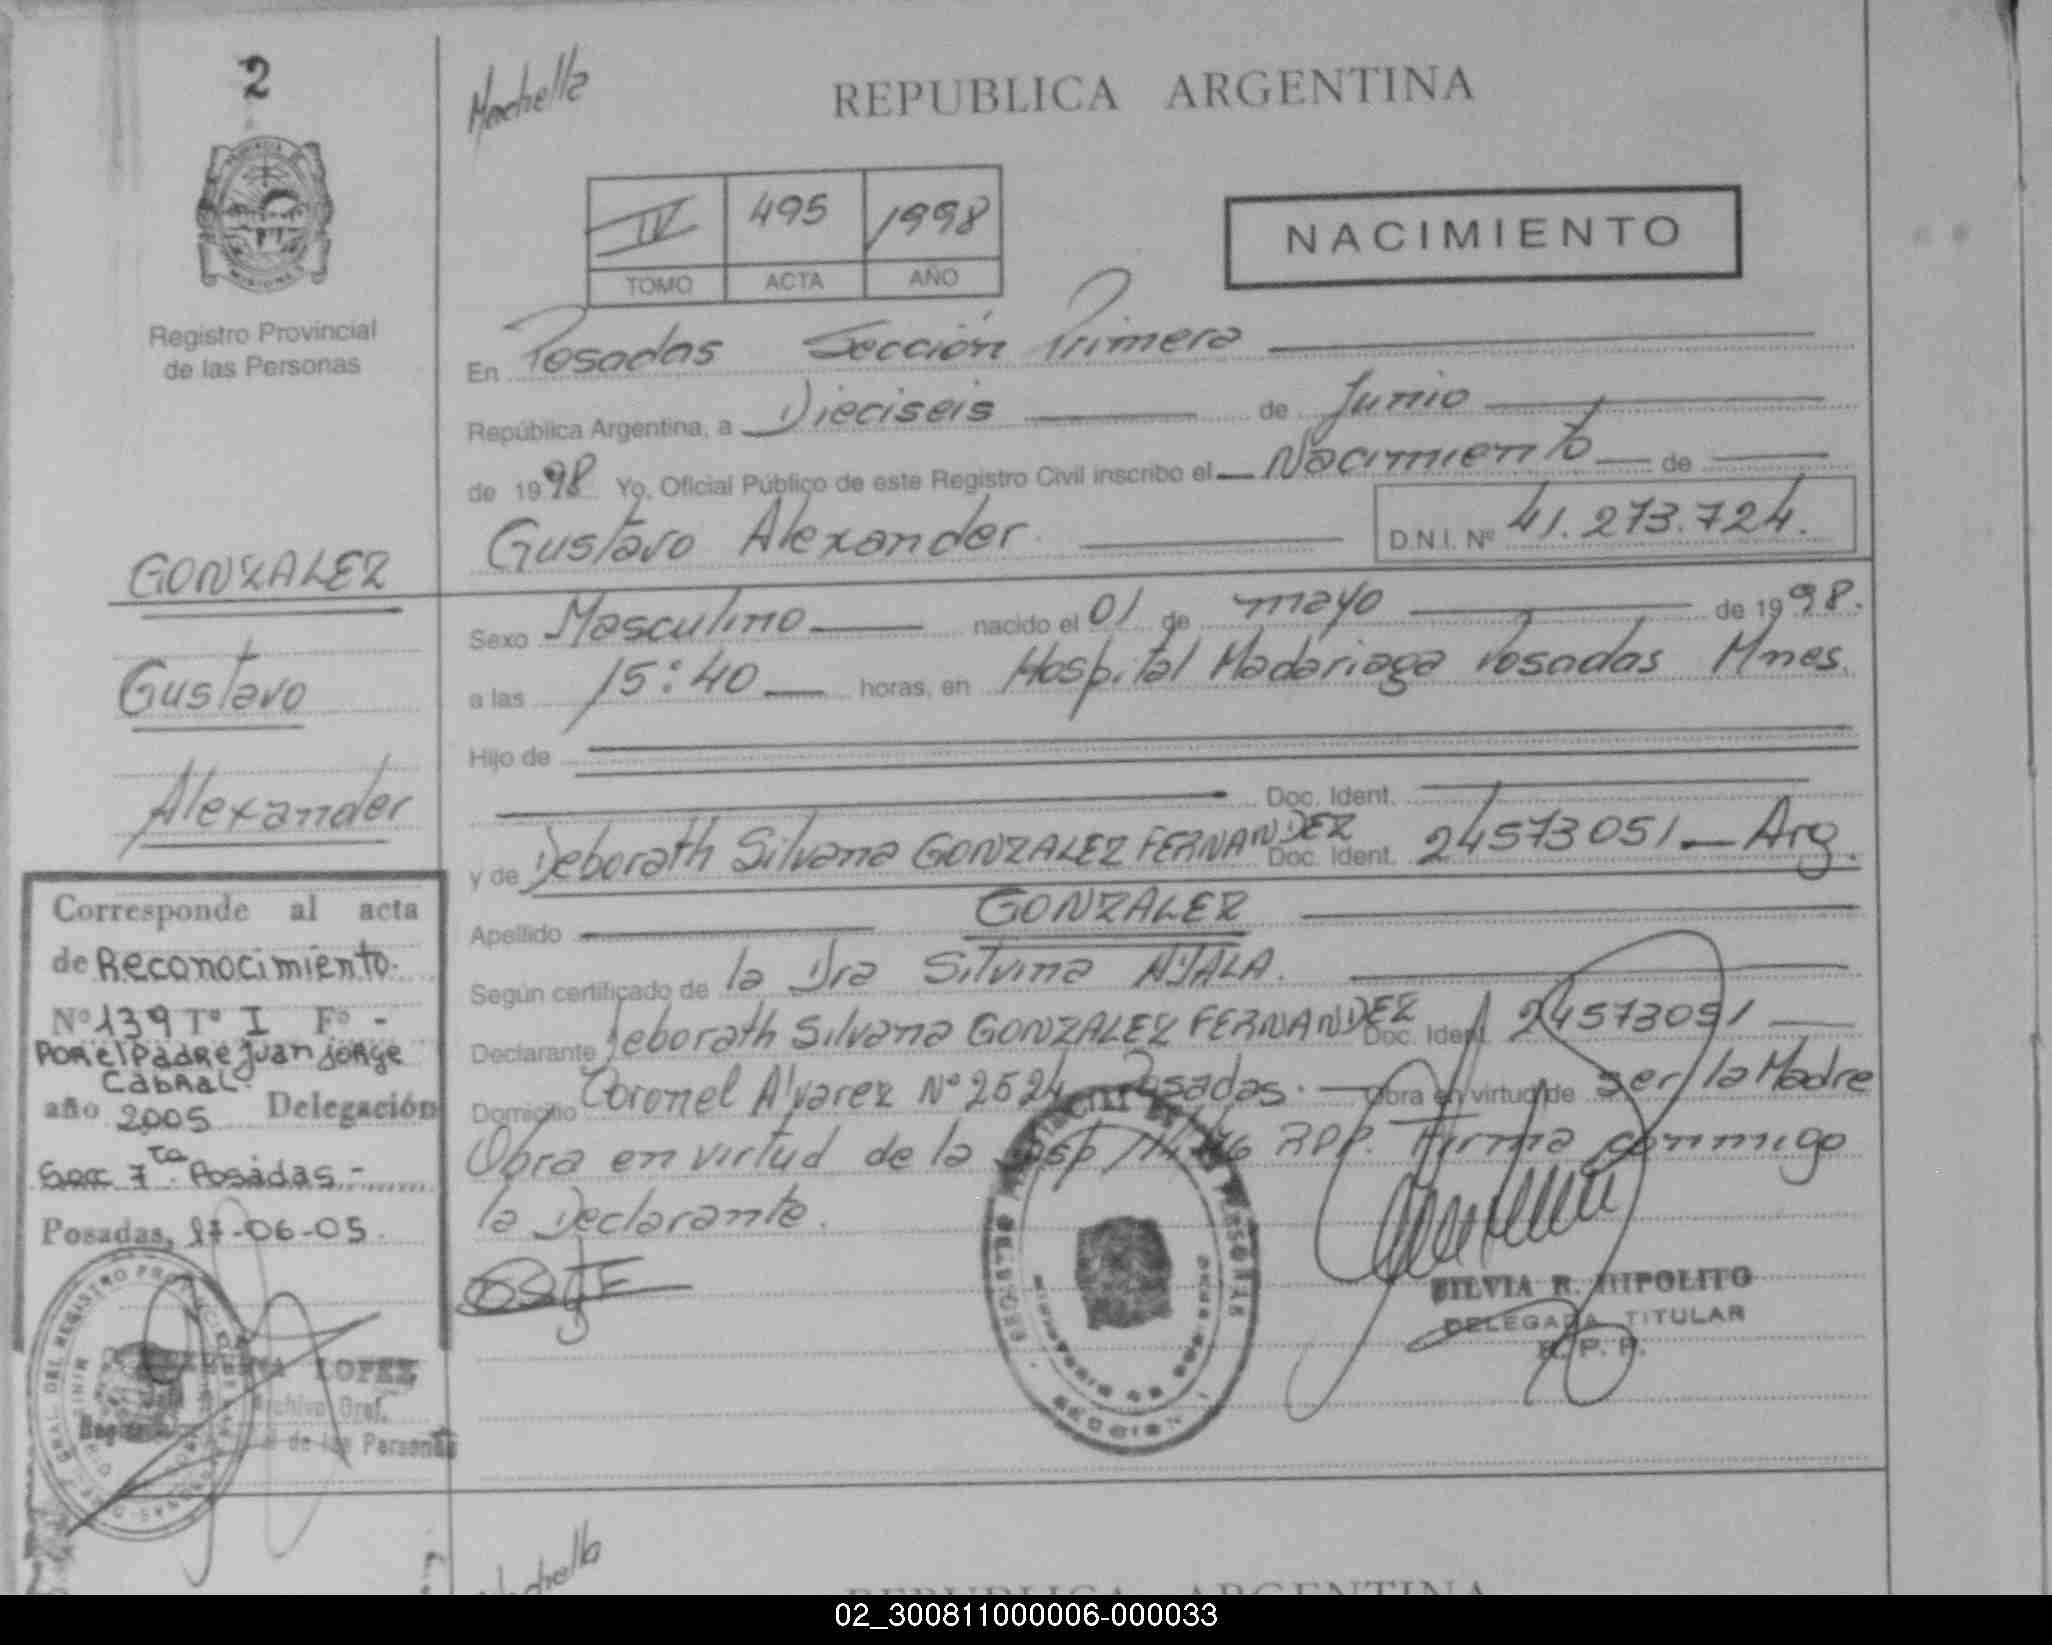 2
Machella
REPUBLICA ARGENTINA
IV 495 1998
TOMO ACTA AÑO
NACIMIENTO
Registro Provincial
de las Personas
En Posadas Sección Primera
República Argentina, a Dieciseis de Junio
de 1998 Yo, Oficial Público de este Registro Civil inscribo el Nacimiento de
Gustavo Alexander D.N.I. Nº 41.273.724.
GONZALEZ
Gustavo
Alexander
Sexo Masculino nacido el 01 de mayo de 1998.
a las 15:40 horas, en Hospital Madariaga Posadas Mnes.
Hijo de
Doc. Ident.
y de Deborath Silvana GONZALEZ FERNANDEZ Doc. Ident. 24573051 - Arg.
Apellido GONZALEZ
Según certificado de la Dra Silvina AYALA.
Declarante Deborath Silvana GONZALEZ FERNANDEZ Doc. Ident. 24573051
Domicilio Coronel Alvarez Nº 2524 Posadas. Obra en virtud de ser la Madre
Obra en virtud de la RPP. Firma conmigo
la Declarante.
Corresponde al acta
de Reconocimiento.
Nº 139 Tº I Fº -
POR el PADRE Juan JORGE
CABRAL
año 2005 Delegación
Secc 7ta. Posadas.-
Posadas, 17-06-05.
LOPEZ
Archivo Gral.
de las Personas
SILVIA R. HIPOLITO
DELEGADA TITULAR
R. P. P.
SECCION
Machella
REPUBLICA ARGENTINA
02_300811000006-000033